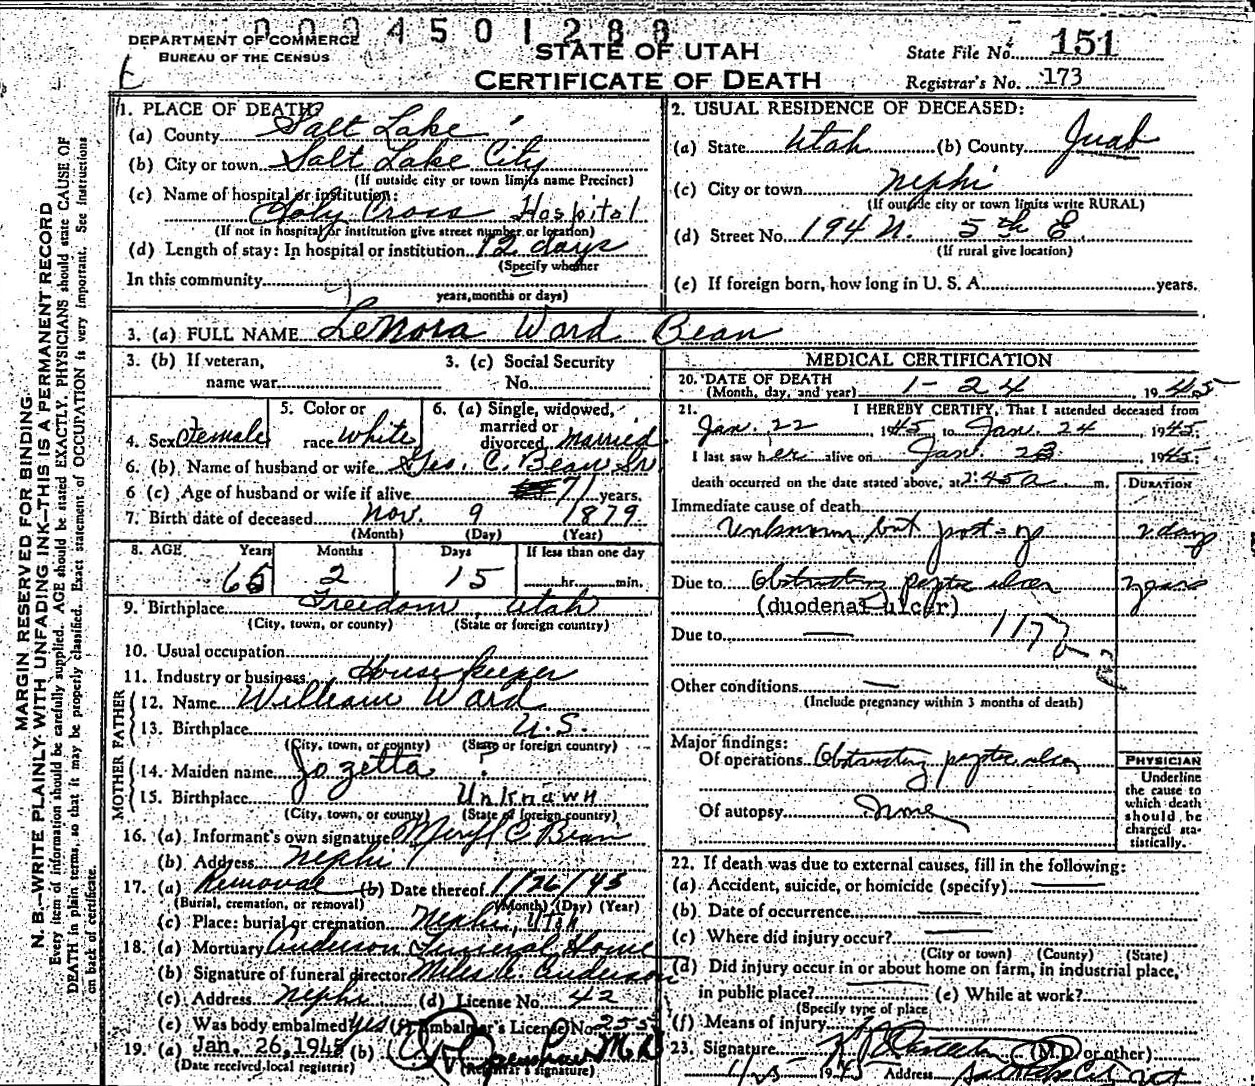 0004501288
DEPARTMENT OF COMMERCE
BUREAU OF THE CENSUS
STATE OF UTAH
CERTIFICATE OF DEATH
State File No. 151
Registrar's No. 173
MARGIN RESERVED FOR BINDING
N. B.—WRITE PLAINLY WITH UNFADING INK—THIS IS A PERMANENT RECORD
Every item of information should be carefully supplied. AGE should be stated EXACTLY. PHYSICIANS should state CAUSE OF
DEATH in plain terms, so that it may be properly classified. Exact statement of OCCUPATION is very important. See instructions
on back of certificate.
1. PLACE OF DEATH:
(a) County Salt Lake
(b) City or town Salt Lake City
(If outside city or town limits name Precinct)
(c) Name of hospital or institution:
Holy Cross Hospital
(If not in hospital or institution give street number or location)
(d) Length of stay: In hospital or institution 12 days
(Specify whether
In this community
years, months or days)
2. USUAL RESIDENCE OF DECEASED:
(a) State Utah (b) County Juab
(c) City or town Nephi
(If outside city or town limits write RURAL)
(d) Street No. 194 N. 5th E.
(If rural give location)
(e) If foreign born, how long in U. S. A. years.
3. (a) FULL NAME LeNora Ward Bean
3. (b) If veteran,
name war
3. (c) Social Security
No.
4. Sex Female
5. Color or
race White
6. (a) Single, widowed,
married or
divorced, Married
6. (b) Name of husband or wife Geo. C. Bean Sr
6 (c) Age of husband or wife if alive 71 years.
7. Birth date of deceased Nov. 9 1879
(Month) (Day) (Year)
8. AGE Years Months Days If less than one day
65 2 15 hr. min.
9. Birthplace Freedom, Utah
(City, town, or county) (State or foreign country)
10. Usual occupation
11. Industry or business House Keeper
FATHER
12. Name William Ward
13. Birthplace U.S.
(City, town, or county) (State or foreign country)
MOTHER
14. Maiden name Jozetta ?
15. Birthplace Unknown
(City, town, or county) (State of foreign country)
16. (a) Informant's own signature Meryl C. Bean
(b) Address Nephi
17. (a) Removal (b) Date thereof 1/26/45
(Burial, cremation, or removal) (Month) (Day) (Year)
(c) Place: burial or cremation Nephi, Utah
18. (a) Mortuary Anderson Funeral Home
(b) Signature of funeral director Miles A. Anderson
(c) Address Nephi (d) License No. 42
(e) Was body embalmed yes (f) Embalmer's License No. 255
19. (a) Jan. 26, 1945 (b) M.D.
(Date received local registrar) (Registrar's signature)
MEDICAL CERTIFICATION
20. DATE OF DEATH
(Month, day, and year) 1-24, 1945
21. I HEREBY CERTIFY, That I attended deceased from
Jan. 22, 1945 to Jan. 24, 1945.
I last saw her alive on Jan. 23 1945
death occurred on the date stated above, at 2:45 a m.
DURATION
Immediate cause of death
Unknown but post-op 2 days
Due to Obstructing peptic ulcer years
(duodenal ulcer)
Due to — 117
Other conditions —
(Include pregnancy within 3 months of death)
Major findings:
Of operations Obstructing peptic ulcer
Of autopsy None
PHYSICIAN
Underline
the cause to
which death
should be
charged sta-
tistically.
22. If death was due to external causes, fill in the following:
(a) Accident, suicide, or homicide (specify) —
(b) Date of occurrence —
(c) Where did injury occur? —
(City or town) (County) (State)
(d) Did injury occur in or about home on farm, in industrial place,
in public place? — (e) While at work?
(Specify type of place
(f) Means of injury
23. Signature (M.D. or other)
1/25 1945 Address